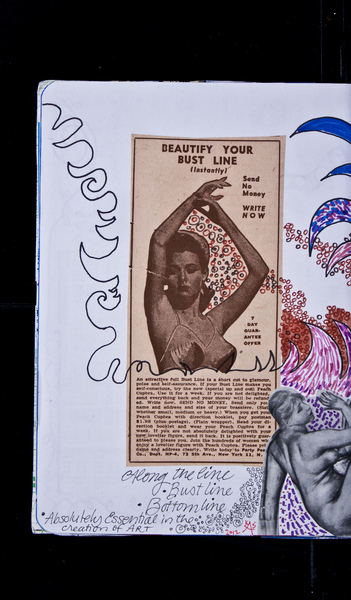 BEAUTIFY YOUR
BUST LINE
(Instantly)
Send
No
Money
WRITE
NOW
7
DAY
GUAR-
ANTEE
OFFER
An attractive full Bust Line is a short cut to glamour,
poise and self-assurance. If your Bust Line makes you
self-conscious, try the new (special up and out) Peach
Cupers. Use it for a week. If you are not delighted,
send everything back and your money will be refund-
ed. Write now. SEND NO MONEY. Send only your
name and address and size of your brassiere. (State
whether small, medium or heavy.) When you get your
Peach Cupers with direction booklet, pay postman
$1.98 (plus postage). (Plain wrapper). Read your di-
rection booklet and wear your Peach Cupers for a
week. If you are not absolutely delighted with your
new lovelier figure, send it back. It is positively guar-
anteed to please you. Join the hundreds of women who
enjoy a lovelier figure with Peach Cupers. Print your
name and address clearly. Write today to Party Pee
Co., Dept.
Along the line
• Bust line
• Bottom line
• Absolutely Essential in the
creation of ART